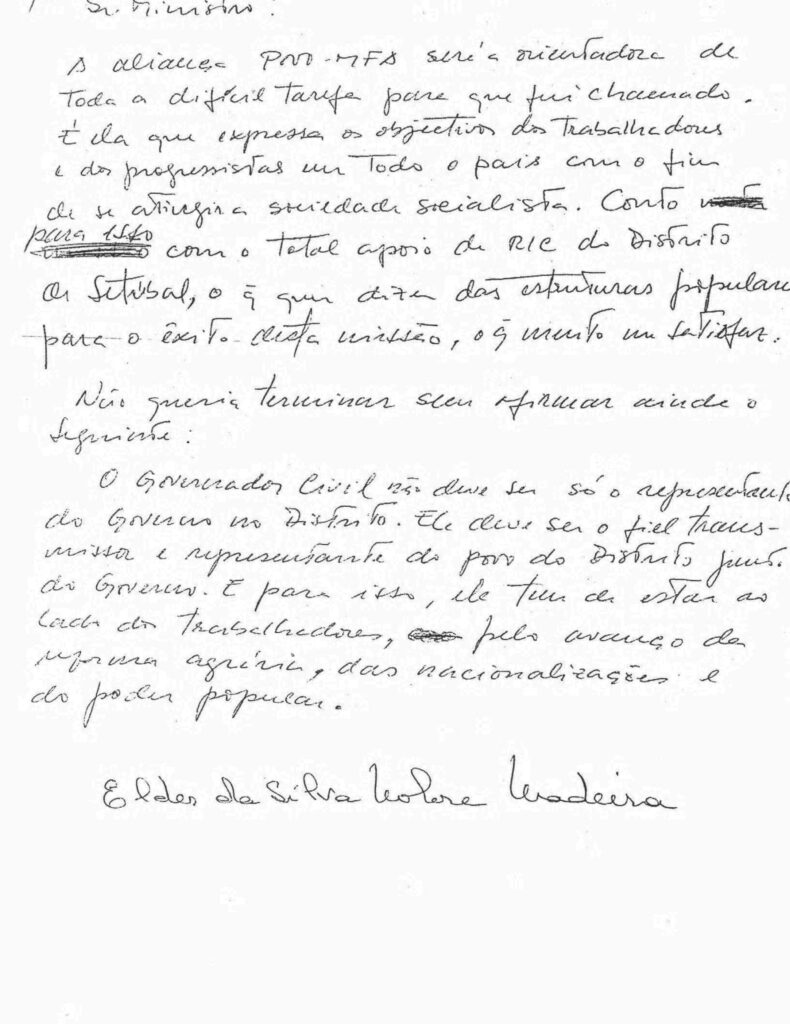 Sr. Ministro:
A aliança POVO-MFA será a orientadora de
toda a difícil tarefa para que fui chamado.
É ela que expressa os objectivos dos trabalhadores
e dos progressistas em todo o país com o fim
de se atingir a sociedade socialista. Conto
para isso
com o total apoio do RIC do Distrito
de Setúbal, o q̃ quer dizer das estruturas populare
para o êxito desta missão, o q̃ muito me satisfaz.
Não queria terminar sem afirmar ainda o
seguinte:
O Governador Civil não deve ser só o representante
do Governo no Distrito. Ele deve ser o fiel trans-
missor e representante do povo do Distrito junto
do Governo. E para isso, ele tem de estar ao
lado dos trabalhadores, pelo avanço da
reforma agrária, das nacionalizações e
do poder popular.
Elder da Silva Nobre Madeira